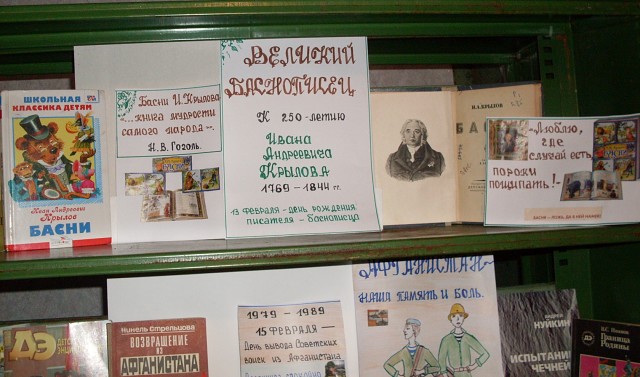 ШКОЛЬНАЯ
КЛАССИКА ДЕТЯМ
Иван Андреевич
Крылов
БАСНИ
Басни И. Крылова
...книга мудрости
самого народа".
Н. В. Гоголь.
ВЕЛИКИЙ
БАСНОПИСЕЦ
К 250-летию
Ивана
Андреевича
Крылова
1769 - 1844 гг.
13 февраля - день рождения
писателя - баснописца
И.А. КРЫЛОВ
"Люблю, где
случай есть,
пороки
пощипать!"
1979 - 1989
15 ФЕВРАЛЯ —
День вывода Советских
войск из Афганистана
АФГАНИСТАН -
НАША ПАМЯТЬ И БОЛЬ.
ДЭ
Нинель Стрельцова
ВОЗВРАЩЕНИЕ
ИЗ
АФГАНИСТАНА
АНДРЕЙ
НУЙКИН
ИСПЫТАНИЕ
ЧЕЧНЕЙ
ДЭ
Граница
Родины